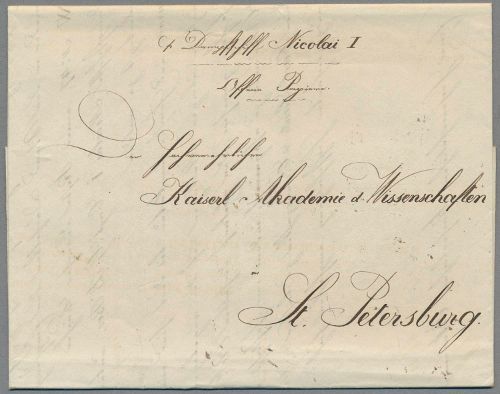 p Dampfschiff Nicolai I
Offene Papiere.
Der
Kaiserl Akademie d Wissenschaften
St. Petersburg.